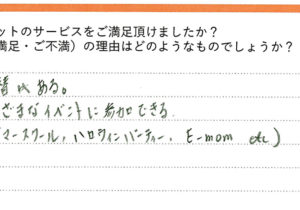 ットのサービスをご満足頂けましたか？
満足・ご不満）の理由はどのようなものでしょうか？
ある。
ざまなイベントに参加できる.
マースクール, ハロウィンパーティー, E-mom etc)